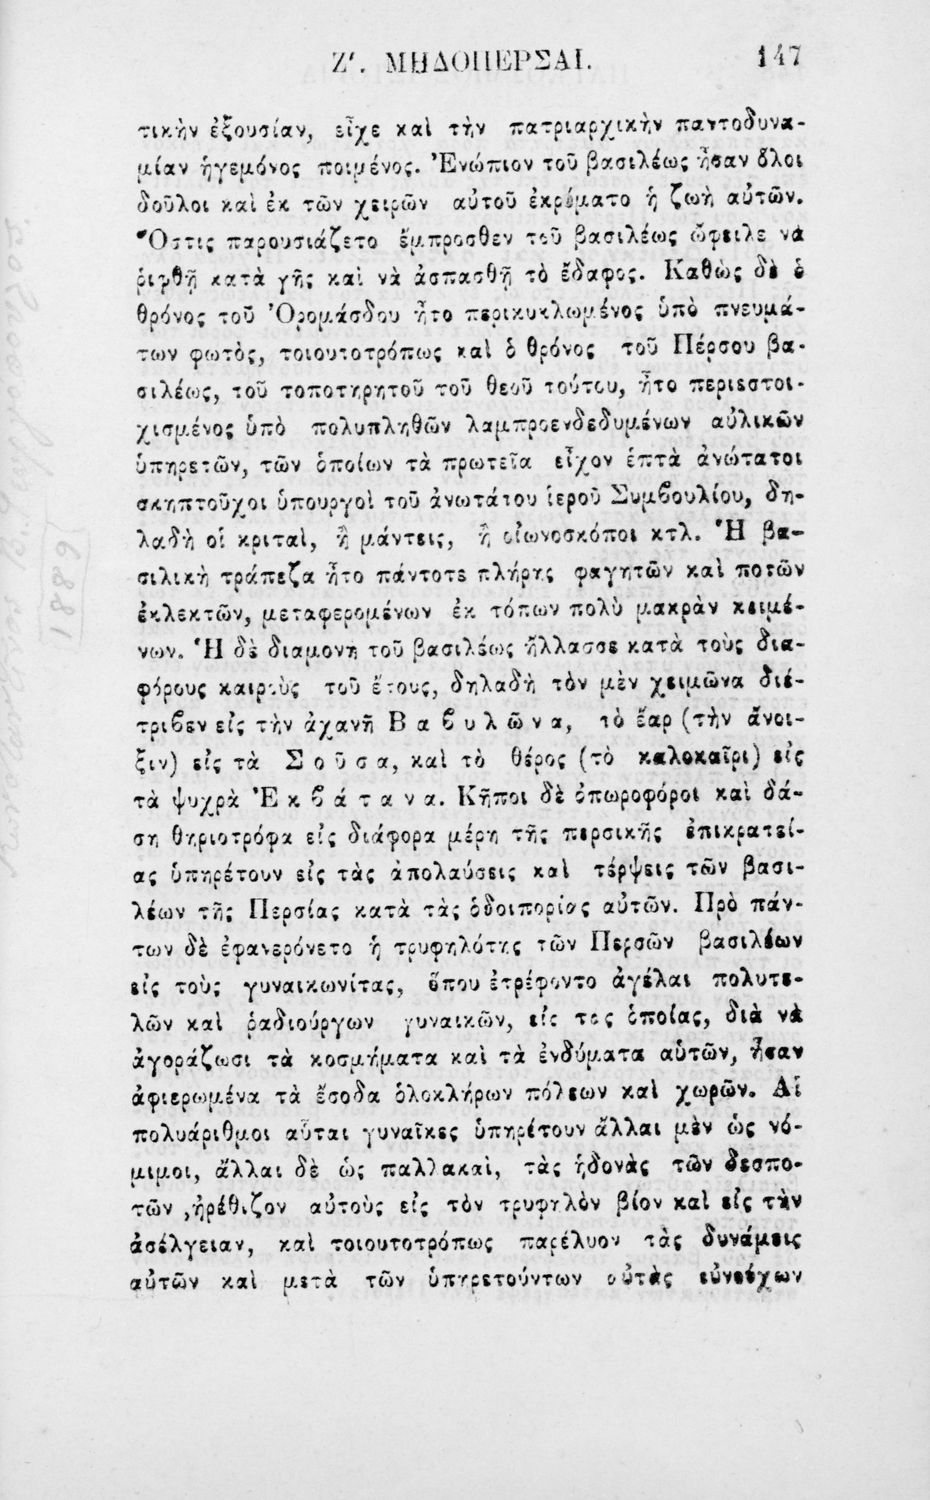 Ζ'. ΜΗΔΟΠΕΡΣΑΙ. 147
τικὴν ἐξουσίαν, εἶχε καὶ τὴν πατριαρχικὴν παντοδυνα-
μίαν ἡγεμόνος ποιμένος. Ἐνώπιον τοῦ βασιλέως ἦσαν ὅλοι
δοῦλοι καὶ ἐκ τῶν χειρῶν αὐτοῦ ἐκρέματο ἡ ζωὴ αὐτῶν.
Ὅστις παρουσιάζετο ἔμπροσθεν τοῦ βασιλέως ὤφειλε νὰ
ῥιφθῇ κατὰ γῆς καὶ νὰ ἀσπασθῇ τὸ ἔδαφος. Καθὼς δὲ ὁ
θρόνος τοῦ Ὀρομάσδου ἦτο περικυκλωμένος ὑπὸ πνευμά-
των φωτὸς, τοιουτοτρόπως καὶ ὁ θρόνος τοῦ Πέρσου βα-
σιλέως, τοῦ τοποτηρητοῦ τοῦ θεοῦ τούτου, ἦτο περιεστοι-
χισμένος ὑπὸ πολυπληθῶν λαμπροενδεδυμένων αὐλικῶν
ὑπηρετῶν, τῶν ὁποίων τὰ πρωτεῖα εἶχον ἑπτὰ ἀνώτατοι
σκηπτοῦχοι ὑπουργοὶ τοῦ ἀνωτάτου ἱεροῦ Συμβουλίου, δη-
λαδὴ οἱ κριταὶ, ἢ μάντεις, ἢ οἰωνοσκόποι κτλ. Ἡ βα-
σιλικὴ τράπεζα ἦτο πάντοτε πλήρης φαγητῶν καὶ ποτῶν
ἐκλεκτῶν, μεταφερομένων ἐκ τόπων πολὺ μακρὰν κειμέ-
νων. Ἡ δὲ διαμονὴ τοῦ βασιλέως ἤλλασσε κατὰ τοὺς δια-
φόρους καιροὺς τοῦ ἔτους, δηλαδὴ τὸν μὲν χειμῶνα διέ-
τριβεν εἰς τὴν ἀχανῆ Βαβυλῶνα, τὸ ἔαρ (τὴν ἄνοι-
ξιν) εἰς τὰ Σοῦσα, καὶ τὸ θέρος (τὸ καλοκαῖρι) εἰς
τὰ ψυχρὰ Ἐκβάτανα. Κῆποι δὲ ὀπωροφόροι καὶ δά-
ση θηριοτρόφα εἰς διάφορα μέρη τῆς περσικῆς ἐπικρατεί-
ας ὑπηρέτουν εἰς τὰς ἀπολαύσεις καὶ τέρψεις τῶν βασι-
λέων τῆς Περσίας κατὰ τὰς ὁδοιπορίας αὐτῶν. Πρὸ πάν-
των δὲ ἐφανερόνετο ἡ τρυφηλότης τῶν Περσῶν βασιλέων
εἰς τοὺς γυναικωνίτας, ὅπου ἐτρέφοντο ἀγέλαι πολυτε-
λῶν καὶ ῥαδιούργων γυναικῶν, εἰς τὰς ὁποίας, διὰ νὰ
ἀγοράζωσι τὰ κοσμήματα καὶ τὰ ἐνδύματα αὑτῶν, ἦσαν
ἀφιερωμένα τὰ ἔσοδα ὁλοκλήρων πόλεων καὶ χωρῶν. Αἱ
πολυάριθμοι αὗται γυναῖκες ὑπηρέτουν ἄλλαι μὲν ὡς νό-
μιμοι, ἄλλαι δὲ ὡς παλλακαὶ, τὰς ἡδονὰς τῶν δεσπο-
τῶν ,ἠρέθιζον αὐτοὺς εἰς τὸν τρυφηλὸν βίον καὶ εἰς τὴν
ἀσέλγειαν, καὶ τοιουτοτρόπως παρέλυον τὰς δυνάμεις
αὐτῶν καὶ μετὰ τῶν ὑπηρετούντων αὐτὰς εὐνούχων